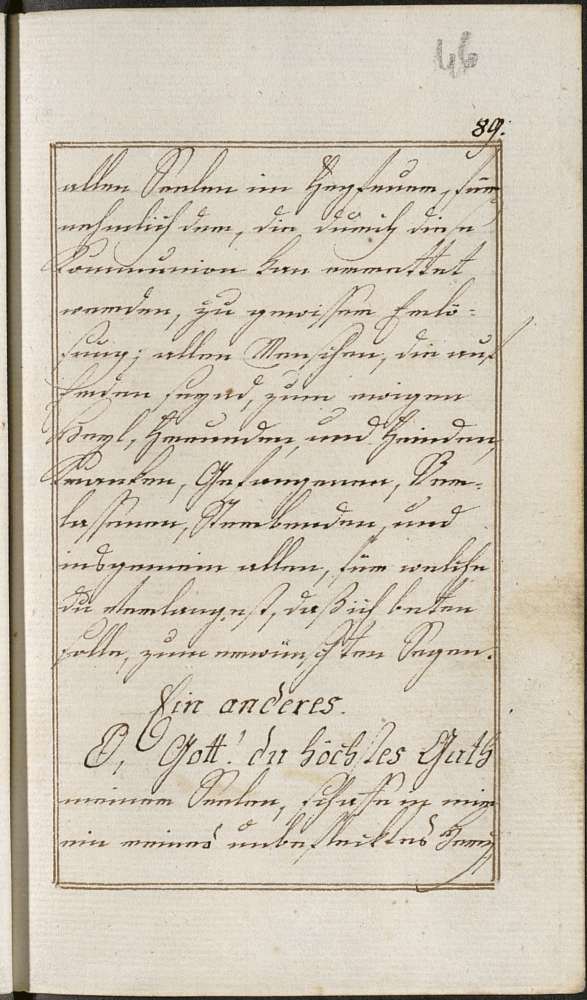 46
89.
allen Seelen im Fegfeuer, für-
nehmlich dem, die durch diese
Kommunion kan errettet
werden, zu gewisser Erlö-
sung; allen Menschen, die auf
Erden seynd, zum ewigen
Heyl, Freunden, und Feinden,
Kranken, Gefangenen, Ver-
lassenen, Sterbenden, und
insgemein allen, für welche
du verlangest, daß ich beten
solle, zum erwünschten Segen.
Ein anderes.
O, Gott! du höchstes Guth
meiner Seelen, schaffe in mir
ein reines unbeflecktes Herz